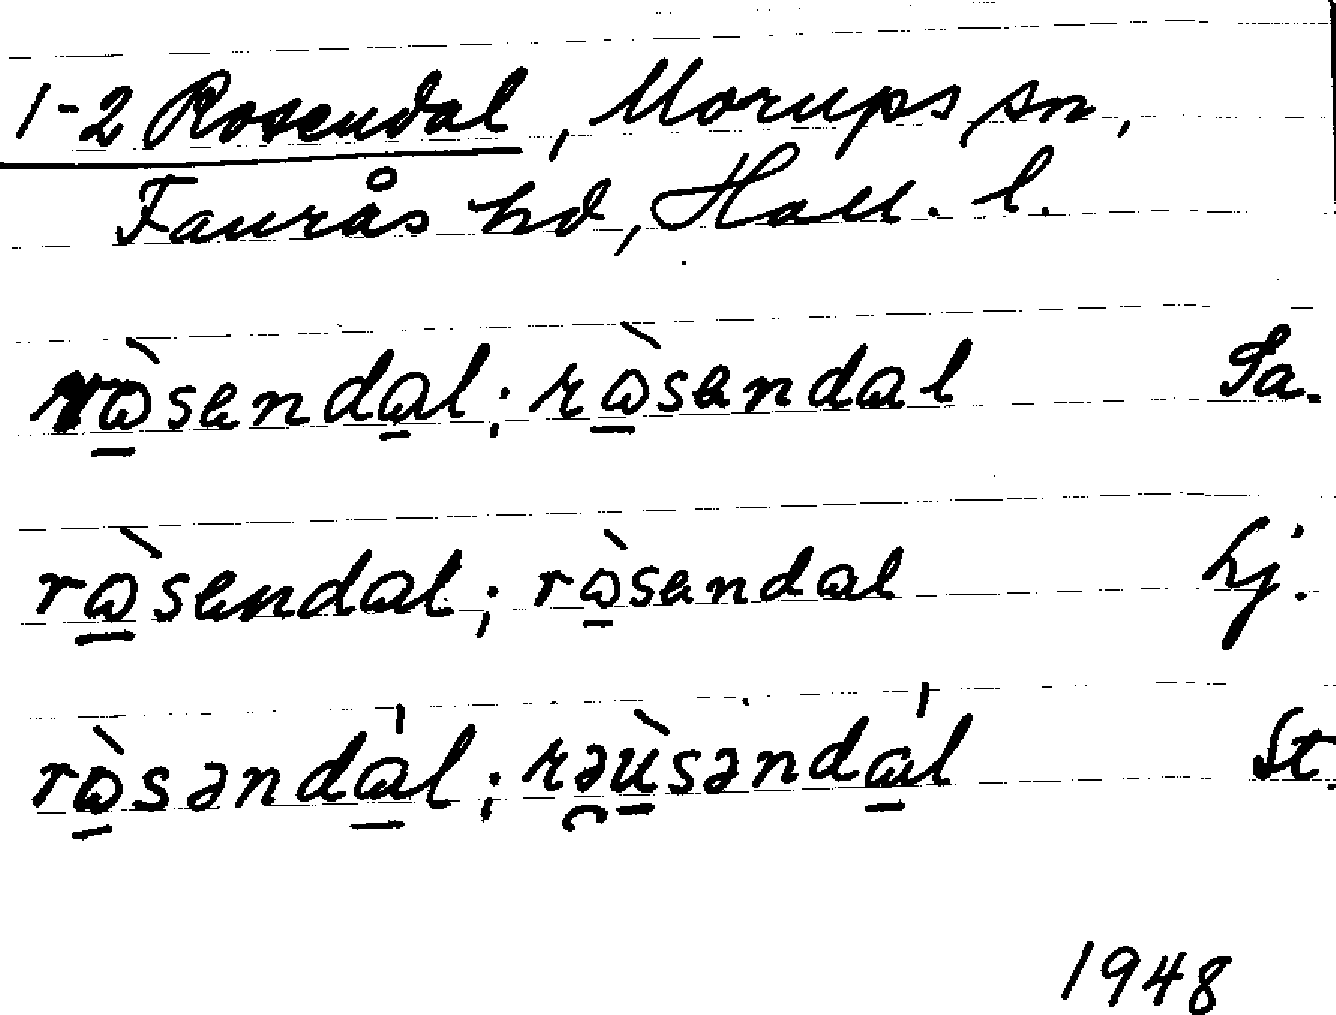 1-2 Rosendal, Morups sn,
Faurås hd, Hall. l.
rɷ̀sendɑl; rɷ̀sendɑl Sa.
rɷ̀sendɑl; rɷ̀sendɑl Lj.
rɷ̀səndɑ̍l; rəùsəndɑ̍l St.
1948